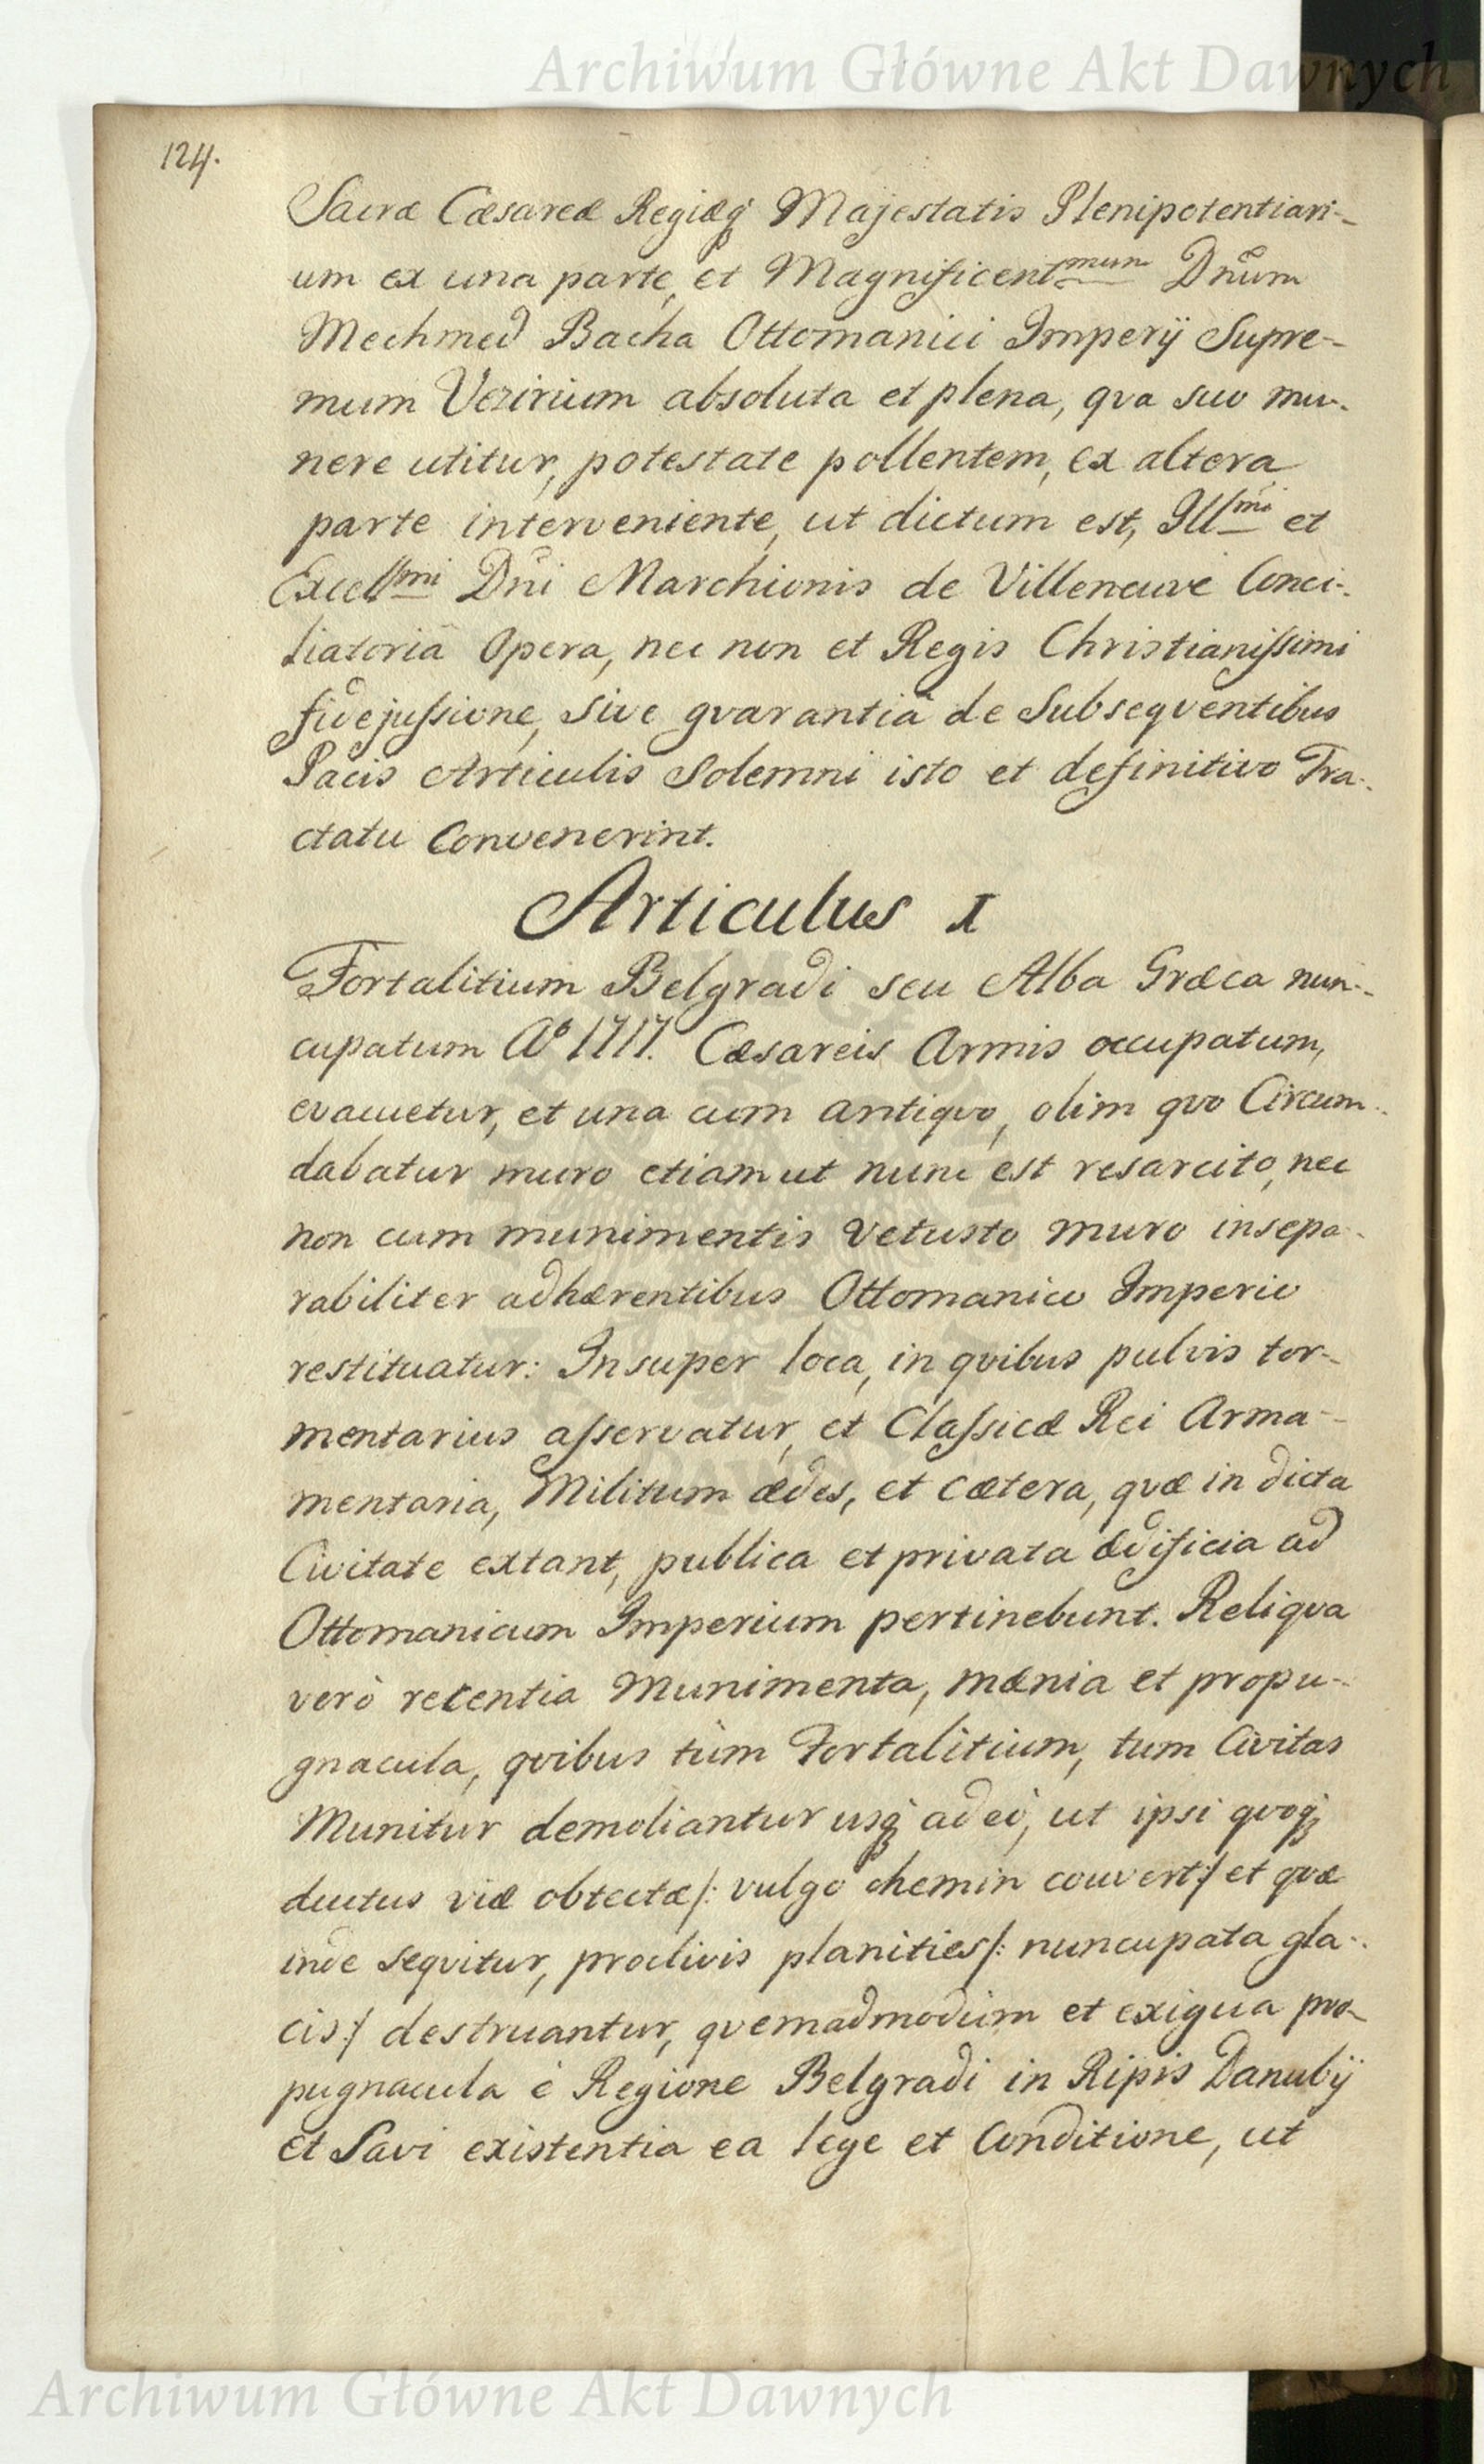 Archiwum Główne Akt Dawnych
124.
Sacræ Cæsareæ Regiæq́ Majestatis Plenipotentiari-
um ex una parte, et Magnificentmum Dnũm
Mechmed Bacha Ottomanici Imperÿ Supre-
mum Vezirium absoluta et plena, qva suo mu-
nere utitur, potestate pollentem, ex altera
parte interveniente, ut dictum est, Illmi et
Excellmi Dni Marchionis de Villeneuve Conci-
liatoriâ Opera, nec non et Regis Christianiſsimi
fidejuſsione, sive gvarantiâ de Subseqventibus
Pacis Articulis Solemni isto et definitivo Tra-
ctatu Convenerint.
Articulus I
Fortalitium Belgradi seu Alba Græca nun-
cupatum Aº 1717. Cæsareis Armis occupatum,
evacuetur, et una cum antiqvo, olim qvo Circum-
dabatur muro etiam ut nunc est resarcito, nec
non cum munimentis vetusto muro insepa-
rabiliter adhærentibus Ottomanico Imperio
restituatur: Insuper loca, in qvibus pulvis tor-
mentarius aſservatur, et Claſsicæ Rei Arma-
mentaria, Militum ædes, et cætera, qvæ in dicta
Civitate extant, publica et privata ædificia ad
Ottomanicum Imperium pertinebunt. Reliqva
verò recentia Munimenta, mænia et propu-
gnacula, qvibus tùm Fortalitium, tum Civitas
Munitur demoliantur usq́ adeò, ut ipsi qvoq́
ductus viæ obtectæ /: vulgo chemin couvert :/ et qvæ
inde seqvitur, proclivis planities /: nuncupata gla-
cis :/ destruantur, qvemadmodum et exigua pro-
pugnacula è Regione Belgradi in Ripis Danubÿ
et Savi existentia ea lege et Conditione, ut
Archiwum Główne Akt Dawnych